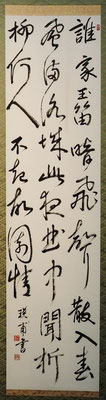 誰家玉笛暗飛聲散入春
風滿洛城此夜曲中聞折
柳何人不起故園情